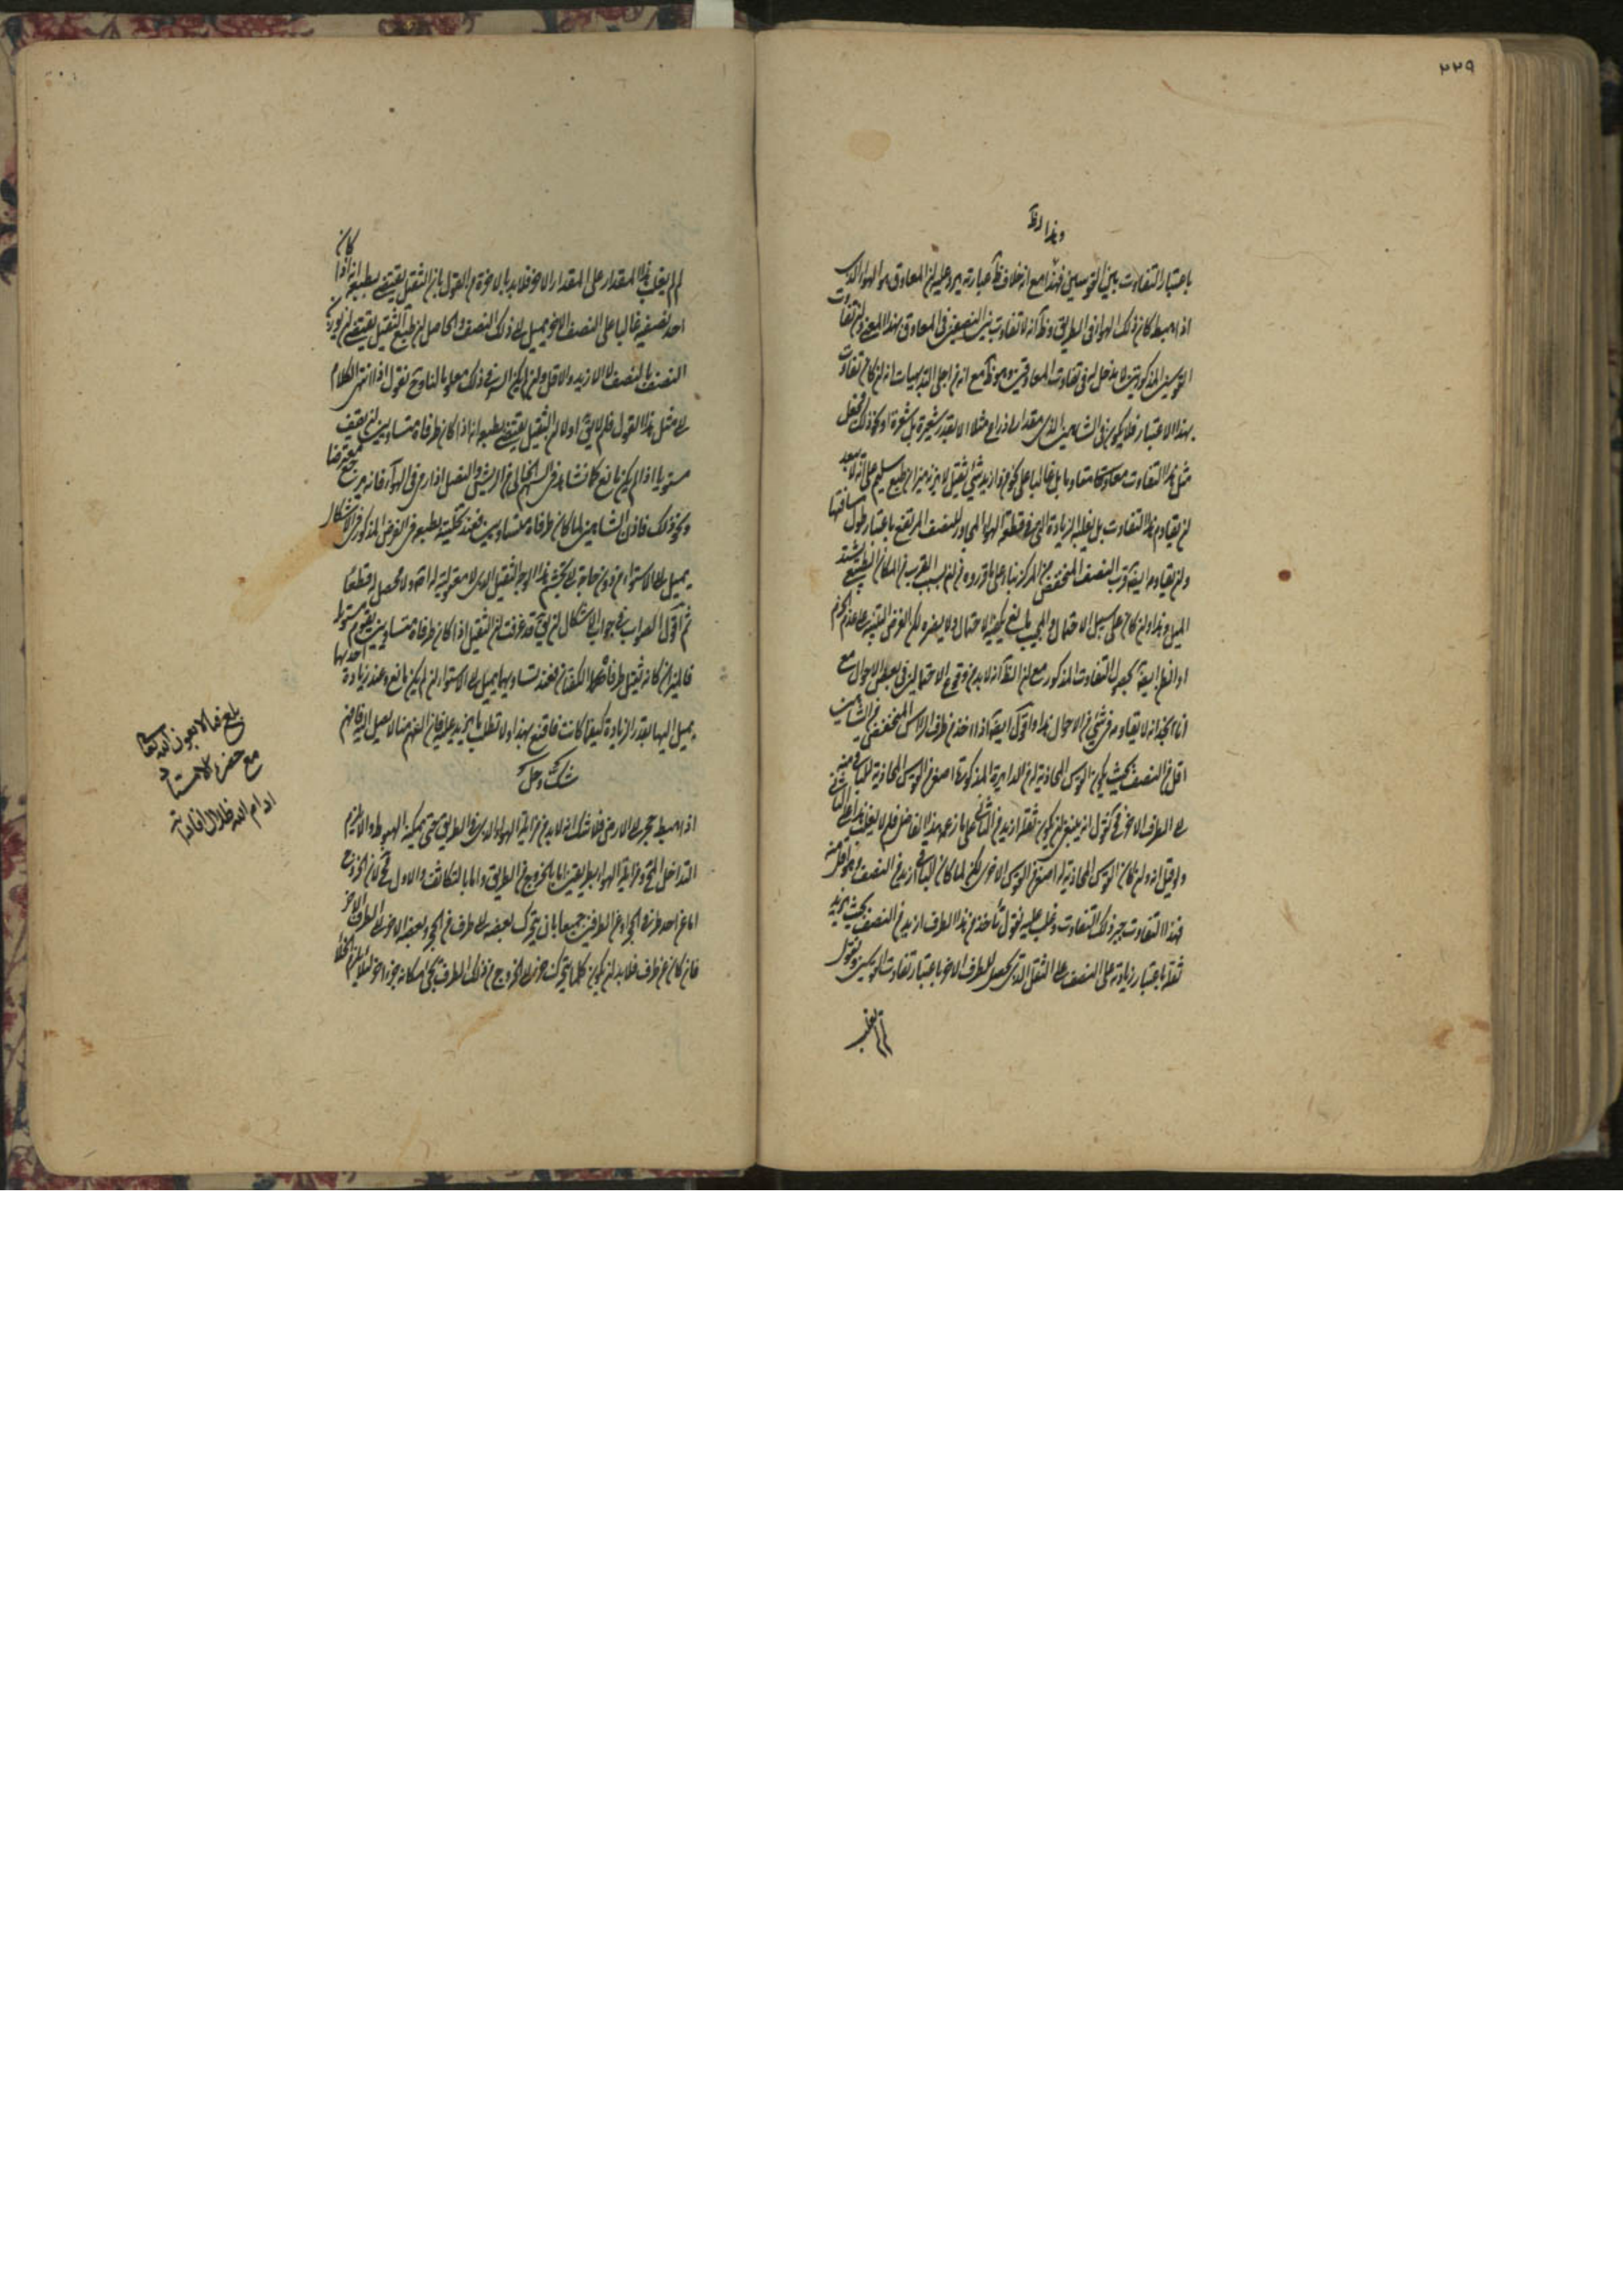 ٢٢٩
وهذا نظ
باعتبار التفاوت بين القوسين فهذا مع انه خلاف ظ عبارته يرد عليه ان المعاوق هو الهواء الذى
اذا هبط كان ذلك الهواء فى الطريق وظ انه لا تفاوت بين النصفين فى المعاوق بهذا المعنى وان تفاوت
القوسين المذكورتين لا يدخل له فى تفاوت المعاوقين وهو ظ مع انه من اجلى البديهيات انه لو كان تفاوت
بهذا الاعتبار فلا يكون فى الشاهين الذى مقداره ذراع مثلا الا بقدر شعيرة بل شعرة او نحو ذلك فجعل
مثل هذا التفاوت معاوقا مقاوما بل غالبا على كون ازيد شئ ثقيل لا يزنه ميزان طبع سليم على انه لا يبعد
ان يقاوم هذا التفاوت بل يغلبه الزيادة التى فى قطعة الهواء المجاور للنصف المرتفع باعتبار طول مسافتها
وان يقاومه ايضا قرب النصف المنخفض من المركز بناء على ما قرروه من ان بسبب القرب من المكان الطبيعى يشتد
الميل وهذا وان كان على سبيل الاحتمال والمجيب مانع يكفيه الاحتمال ولا يضره لكن الغرض التنبيه على عدم الجزم
او انه ايضا بجعل التفاوت المذكور مع ان الظ انه لا بد من وقوع الاحتمالين فى بعض الاحوال مع
انا نجد انه لا يقاومه فى شئ من الاحوال هذا واقول ايضا اذا اخذ من طرف الراس المنخفض من الشاهين
اقل من النصف بحيث يكون القوس المحاذية له من الدايرة المذكورة اصغر من القوس المحاذية للباقى منه
الى الطرف الاخر فح نقول انه ينبغى ان يكون ثقله ازيد من الباقى على ما زعمه هذا الفاضل فلم لا يغلب هذا على الباقى
ولو قيل انه وان كان القوس المحاذية له اصغر من القوس الاخرى لكن لما كان الباقى ازيد من النصف وهو اقل منه
فهذا التفاوت يجبر ذلك التفاوت ويغلب عليه نقول نأخذ من هذا الطرف ازيد من النصف بحيث يزيد
ثقله باعتبار زيادته على النصف على الثقل الذى يحصل للطرف الاخر باعتبار تفاوت القوسين ونقول
لم لم يغلب
كان
لم لم يغلب هذا المقدار على المقدار الاخر فلا بد بالاخرة من القول بان الثقيل يقتضى بطبعه انه اذا
احد نصفيه غالبا على النصف الاخر يميل الى ذلك النصف والحاصل ان طبع الثقيل يقتضى ان يوزن
النصف بالنصف لا الازيد والاقل وان لم يكن السر فى ذلك معلوما لنا وح نقول اذا انتهى الكلام
الى مثل هذا القول فلم لا يق اولا ان الثقيل يقتضى بطبعه انه اذا كان طرفاه متساويين ان يقف
مستويا اذا لم يكن مانع كما نشاهد فى السهم الخالى من الريش والنصل اذا رم فى الهواء فانه يرجع معترضا
ونحو ذلك فاذن الشاهين لما كان طرفاه متساويين فعند تخليته بطبعه فى الفرض المذكور فى الاشكال
يميل الى الاستواء من دون حاجة الى تجشم هذا الوجه الثقيل الذى لا معول له اصلا ولا محصل له قطعا
ثم اقول الصواب فى جواب الاشكال ان يق قد عرفت ان الثقيل اذا كان طرفاه متساويين يقوم مستويا
فالميزان كانه ثقيل طرفاه هما الكفتان فعند تساويهما يميل الى الاستواء ان لم يكن مانع وعند زيادة احديهما
يميل اليها بقدر الزيادة كيفما كانت فاقنع بهذا ولا تطلب ما يزيد عليه فان الفهم منا لا يصل اليه فافهم
شك وحل
اذا هبط حجر الى الارض فلا شك انه لا بد من مزايلة الهواء الذى فى الطريق حتى يمكنه الهبوط والا لزم
التداخل المح ومزايلة الهواء بطريقين اما بالخروج من الطريق واما بالتكاثف والاول مح لان الخروج
اما عن احد طرفى الحجر او عن الطرفين جميعا بان يتحرك بعضه الى طرف من الحجر وبعضه الاخر الى الطرف الاخر
فان كان عن طرف فلا بد ان يكون كلما يتحرك جزء الى الخروج من ذلك الطرف يجئ مكانه جزء اخر لئلا يلزم الخلأ
بلغ قبالا بعون الله تعالى
مع حضرة الاستاد
ادام الله ظلال افاداته